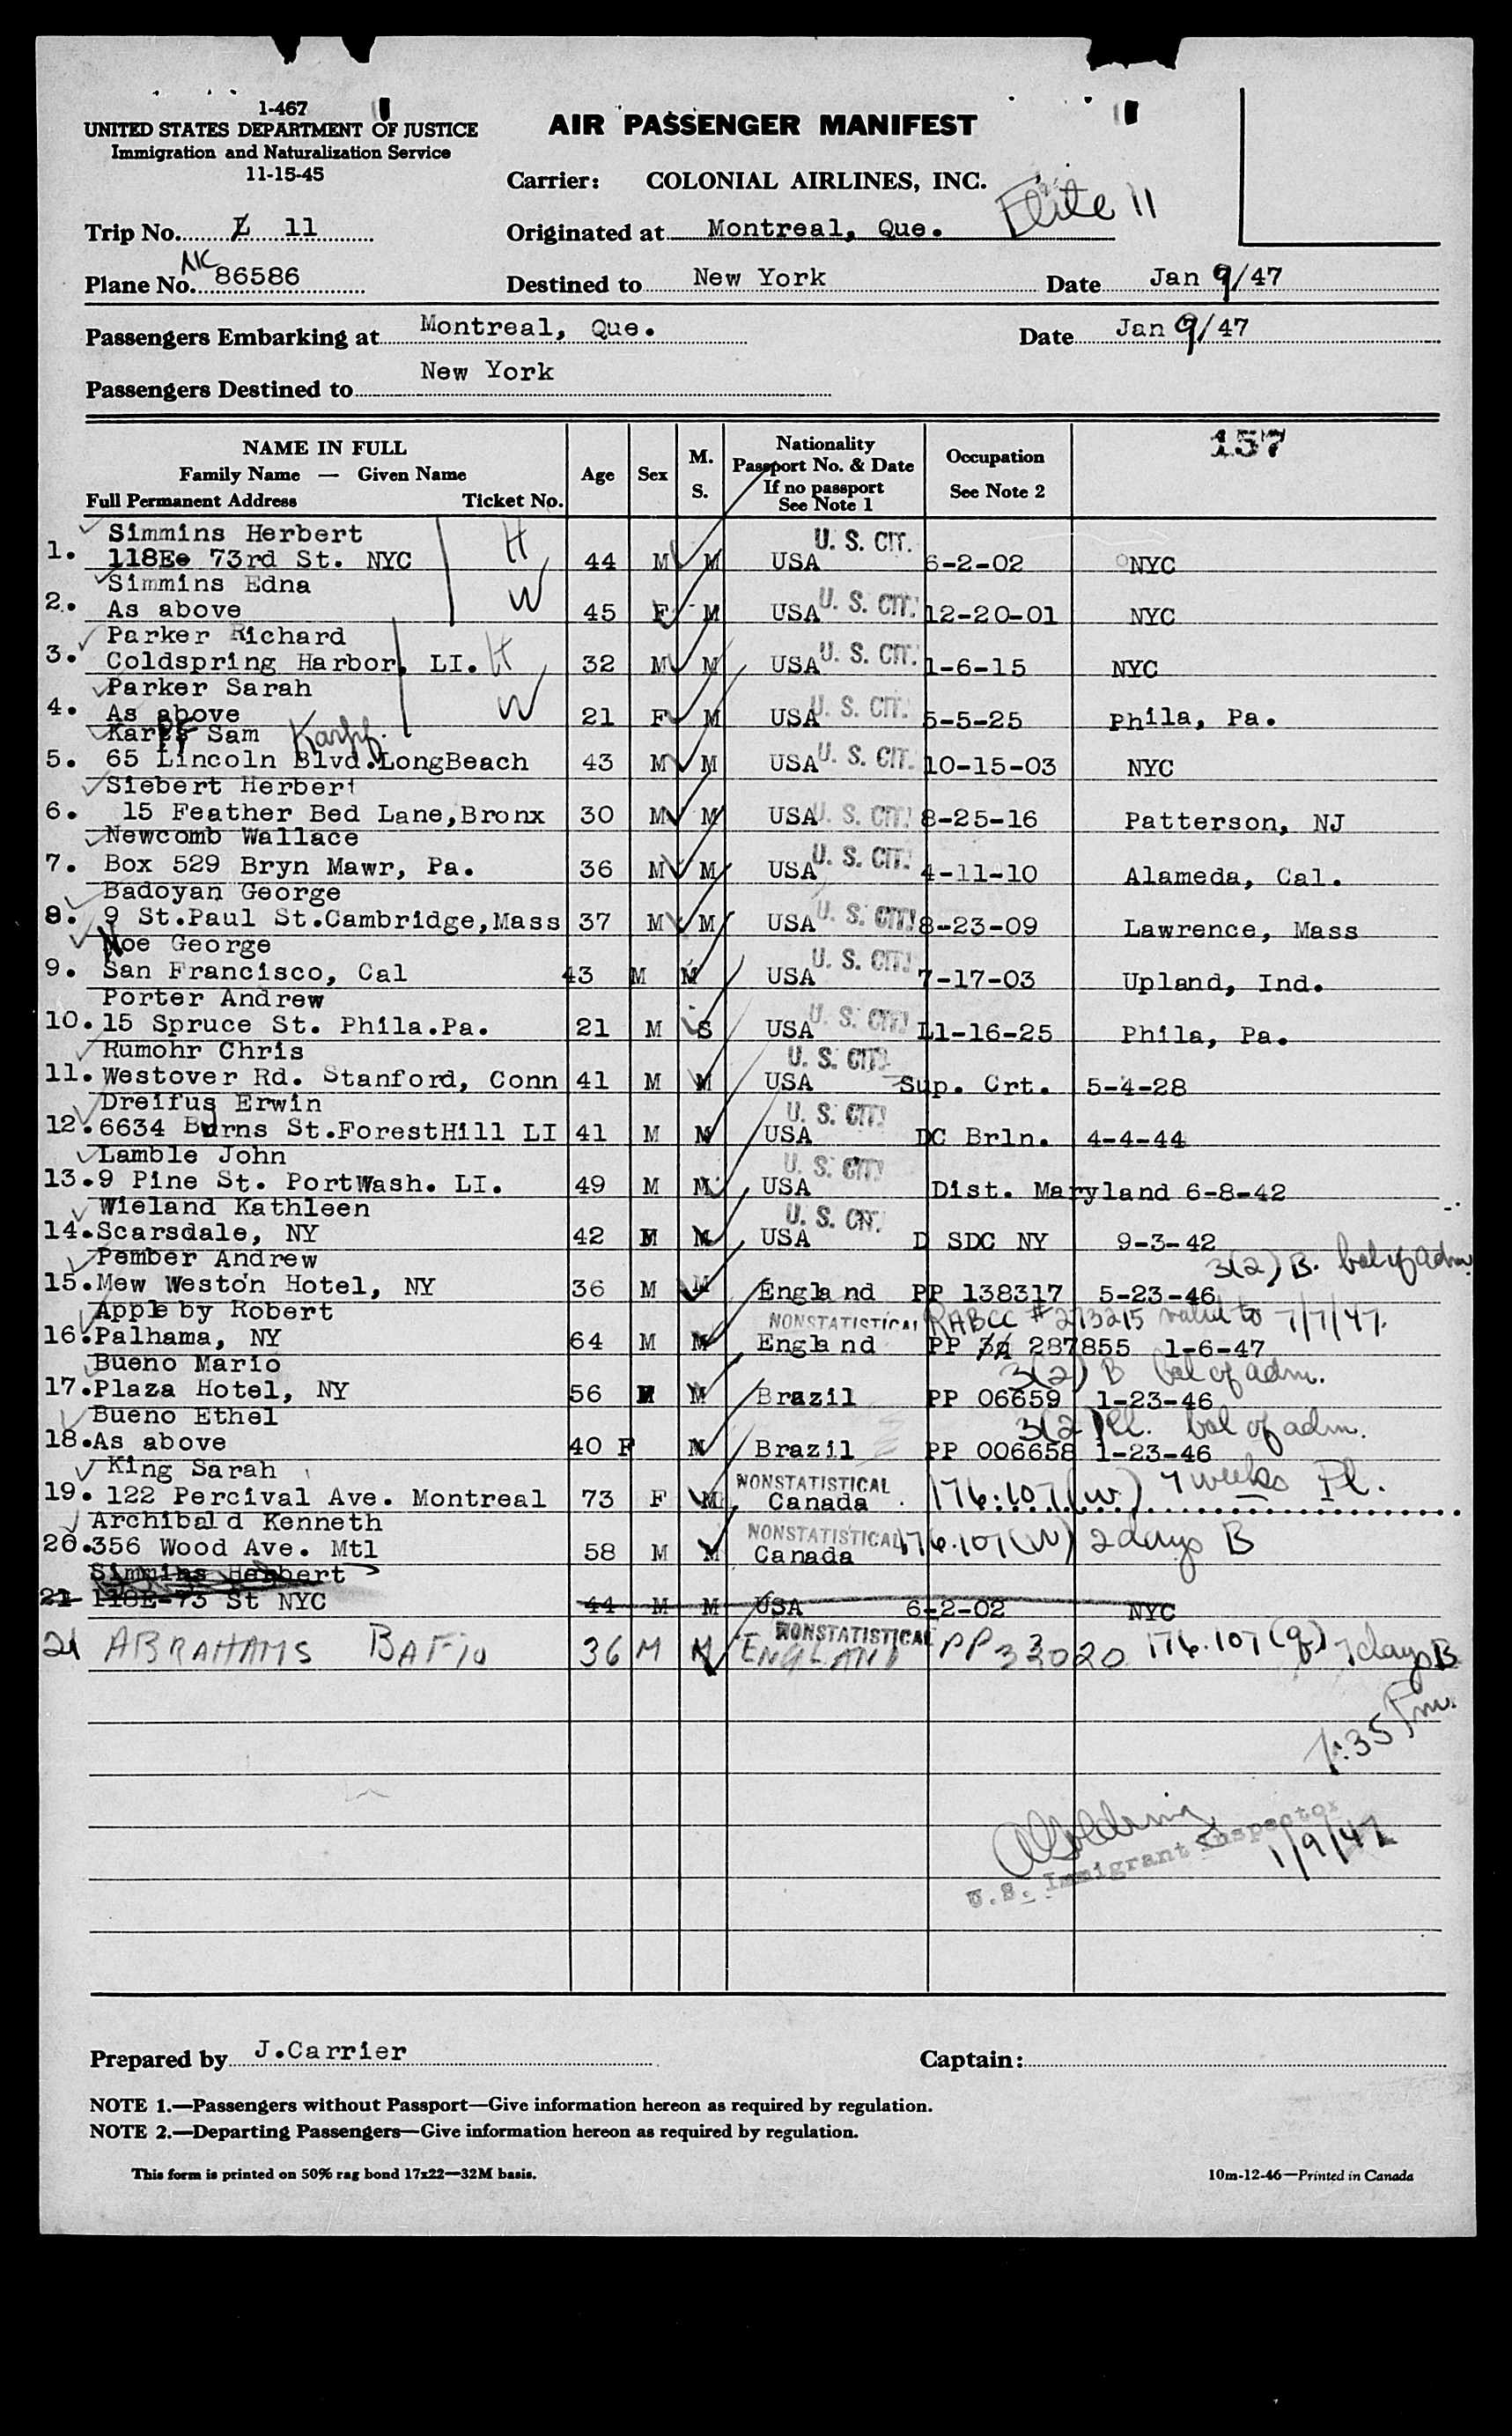 1-467
UNITED STATES DEPARTMENT OF JUSTICE
Immigration and Naturalization Service
11-15-45
AIR PASSENGER MANIFEST
Carrier: COLONIAL AIRLINES, INC.
Flite 11
Trip No. 11
Originated at Montreal, Que.
Plane No. NC 86586
Destined to New York Date Jan 9/47
Passengers Embarking at Montreal, Que. Date Jan 9/47
Passengers Destined to New York
NAME IN FULL
Family Name — Given Name
Full Permanent Address Ticket No.
Age Sex M. S.
Nationality
Passport No. & Date
If no passport
See Note 1
Occupation
See Note 2
157
Simmins Herbert H U. S. CIT.
1. 118E 73rd St. NYC 44 M M USA 6-2-02 NYC
Simmins Edna W
2. As above 45 F M USA U. S. CIT. 12-20-01 NYC
Parker Richard
3. Coldspring Harbor, LI. H 32 M M USA U. S. CIT. 1-6-15 NYC
Parker Sarah W
4. As above 21 F M USA U. S. CIT. 5-5-25 Phila, Pa.
Karpf Sam Karpf
5. 65 Lincoln Blvd.LongBeach 43 M M USA U. S. CIT. 10-15-03 NYC
Siebert Herbert
6. 15 Feather Bed Lane,Bronx 30 M M USA U. S. CIT. 8-25-16 Patterson, NJ
Newcomb Wallace
7. Box 529 Bryn Mawr, Pa. 36 M M USA U. S. CIT. 4-11-10 Alameda, Cal.
Badoyan George
8. 9 St.Paul St.Cambridge,Mass 37 M M USA U. S. CIT. 8-23-09 Lawrence, Mass
Noe George
9. San Francisco, Cal 43 M M USA U. S. CIT. 7-17-03 Upland, Ind.
Porter Andrew
10. 15 Spruce St. Phila.Pa. 21 M S USA U. S. CIT. 11-16-25 Phila, Pa.
Rumohr Chris U. S. CIT.
11. Westover Rd. Stanford, Conn 41 M M USA Sup. Crt. 5-4-28
Dreifus Erwin U. S. CIT.
12. 6634 Burns St.ForestHill LI 41 M M USA DC Brln. 4-4-44
Lamble John U. S. CIT.
13. 9 Pine St. PortWash. LI. 49 M M USA Dist. Maryland 6-8-42
Wieland Kathleen U. S. CIT.
14. Scarsdale, NY 42 M USA D SDC NY 9-3-42
Pember Andrew 3(2) B. bal of adm
15. Mew Weston Hotel, NY 36 M M England PP 138317 5-23-46
Appleby Robert NONSTATISTICAL RABCC # 273215 valid to 7/7/47.
16. Palhama, NY 64 M M England PP 287855 1-6-47
Bueno Mario 3(2) B bal of adm.
17. Plaza Hotel, NY 56 M M Brazil PP 06659 1-23-46
Bueno Ethel 3(2) bal of adm.
18. As above 40 F M Brazil PP 006658 1-23-46
King Sarah NONSTATISTICAL
19. 122 Percival Ave. Montreal 73 F M Canada 176.107(w) 7 weeks Pl.
Archibald Kenneth NONSTATISTICAL 176.107(w) 2 days B
20. 356 Wood Ave. Mtl 58 M M Canada
Simmins Herbert
21 118E-73 St NYC 44 M M USA 6-2-02 NYC
NONSTATISTICAL
21 ABRAHAMS 36 M M ENGLAND PP 33020 176.107(q) 7 days B
1:35 Pm.
U.S. Immigrant Inspector
1/9/47
Prepared by J.Carrier Captain:
NOTE 1.—Passengers without Passport—Give information hereon as required by regulation.
NOTE 2.—Departing Passengers—Give information hereon as required by regulation.
This form is printed on 50% rag bond 17x22—32M basis. 10m-12-46—Printed in Canada